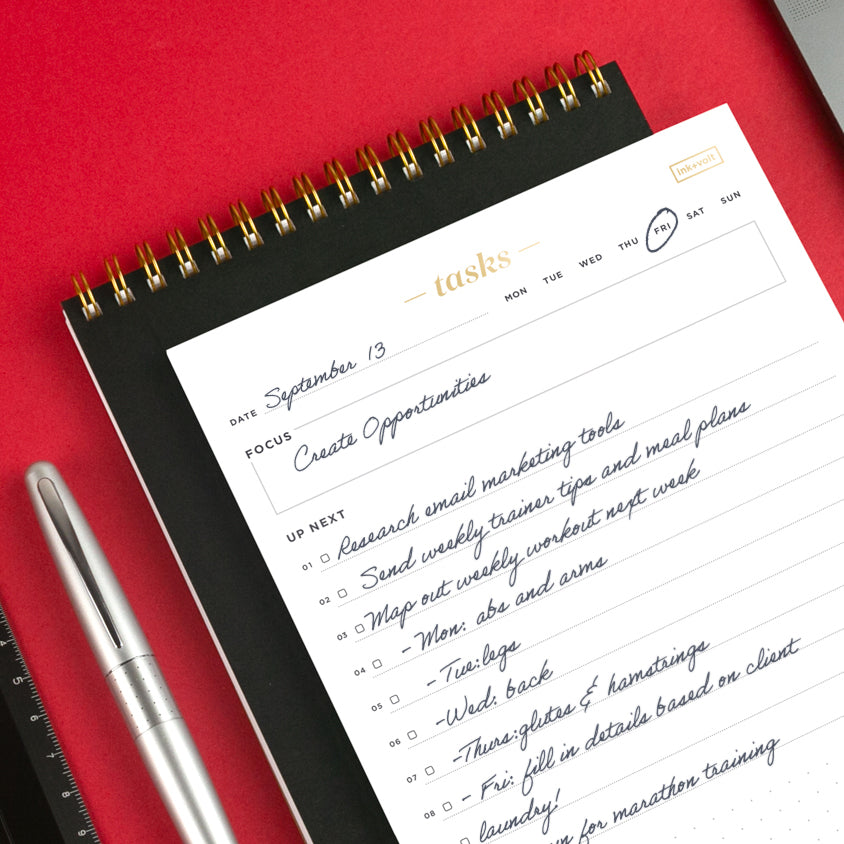 ink+volt
— tasks —
MON TUE WED THU FRI SAT SUN
DATE September 13
FOCUS
Create Opportunities
UP NEXT
01 Research email marketing tools
02 Send weekly trainer tips and meal plans
03 Map out weekly workout next week
04 - Mon: abs and arms
05 - Tue: legs
06 -Wed: back
07 -Thurs: glutes & hamstrings
08 - Fri: fill in details based on client
laundry!
for marathon training
4
5
6
7
8
9